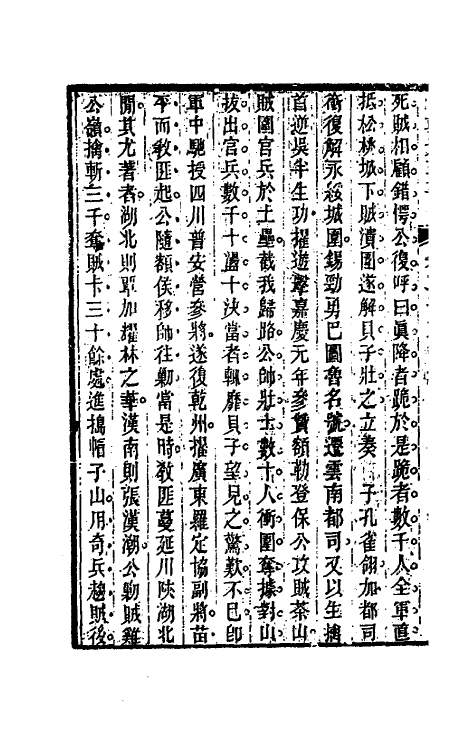 死賊相顧錯愕公復呼曰眞降者跪於是跪者數千人全軍直
抵松桃城下賊潰圍遂解貝子壯之立奏 子孔雀翎加都司
銜復解永綏城圍錫勁勇巴圖魯名號遷雲南都司又以生擒
首逆吳半生功擢遊擊嘉慶元年參贊額勒登保公攻賊茶山
賊圍官兵於土壘截我歸路公帥壯士數十人衝圍奪據對山
拔出官兵數千十盪十決當者輒靡貝子望見之驚歎不已卽
軍中馳授四川普安營參將遂復乾州擢廣東羅定協副將苗
平而敎匪起公隨額侯移師往勦當是時敎匪蔓延川陝湖北
閒其尤著者湖北則覃加耀林之華漢南則張漢潮公勦賊雞
公嶺擒斬三千奪賊卡三十餘處進搗帽子山用奇兵趨賊後